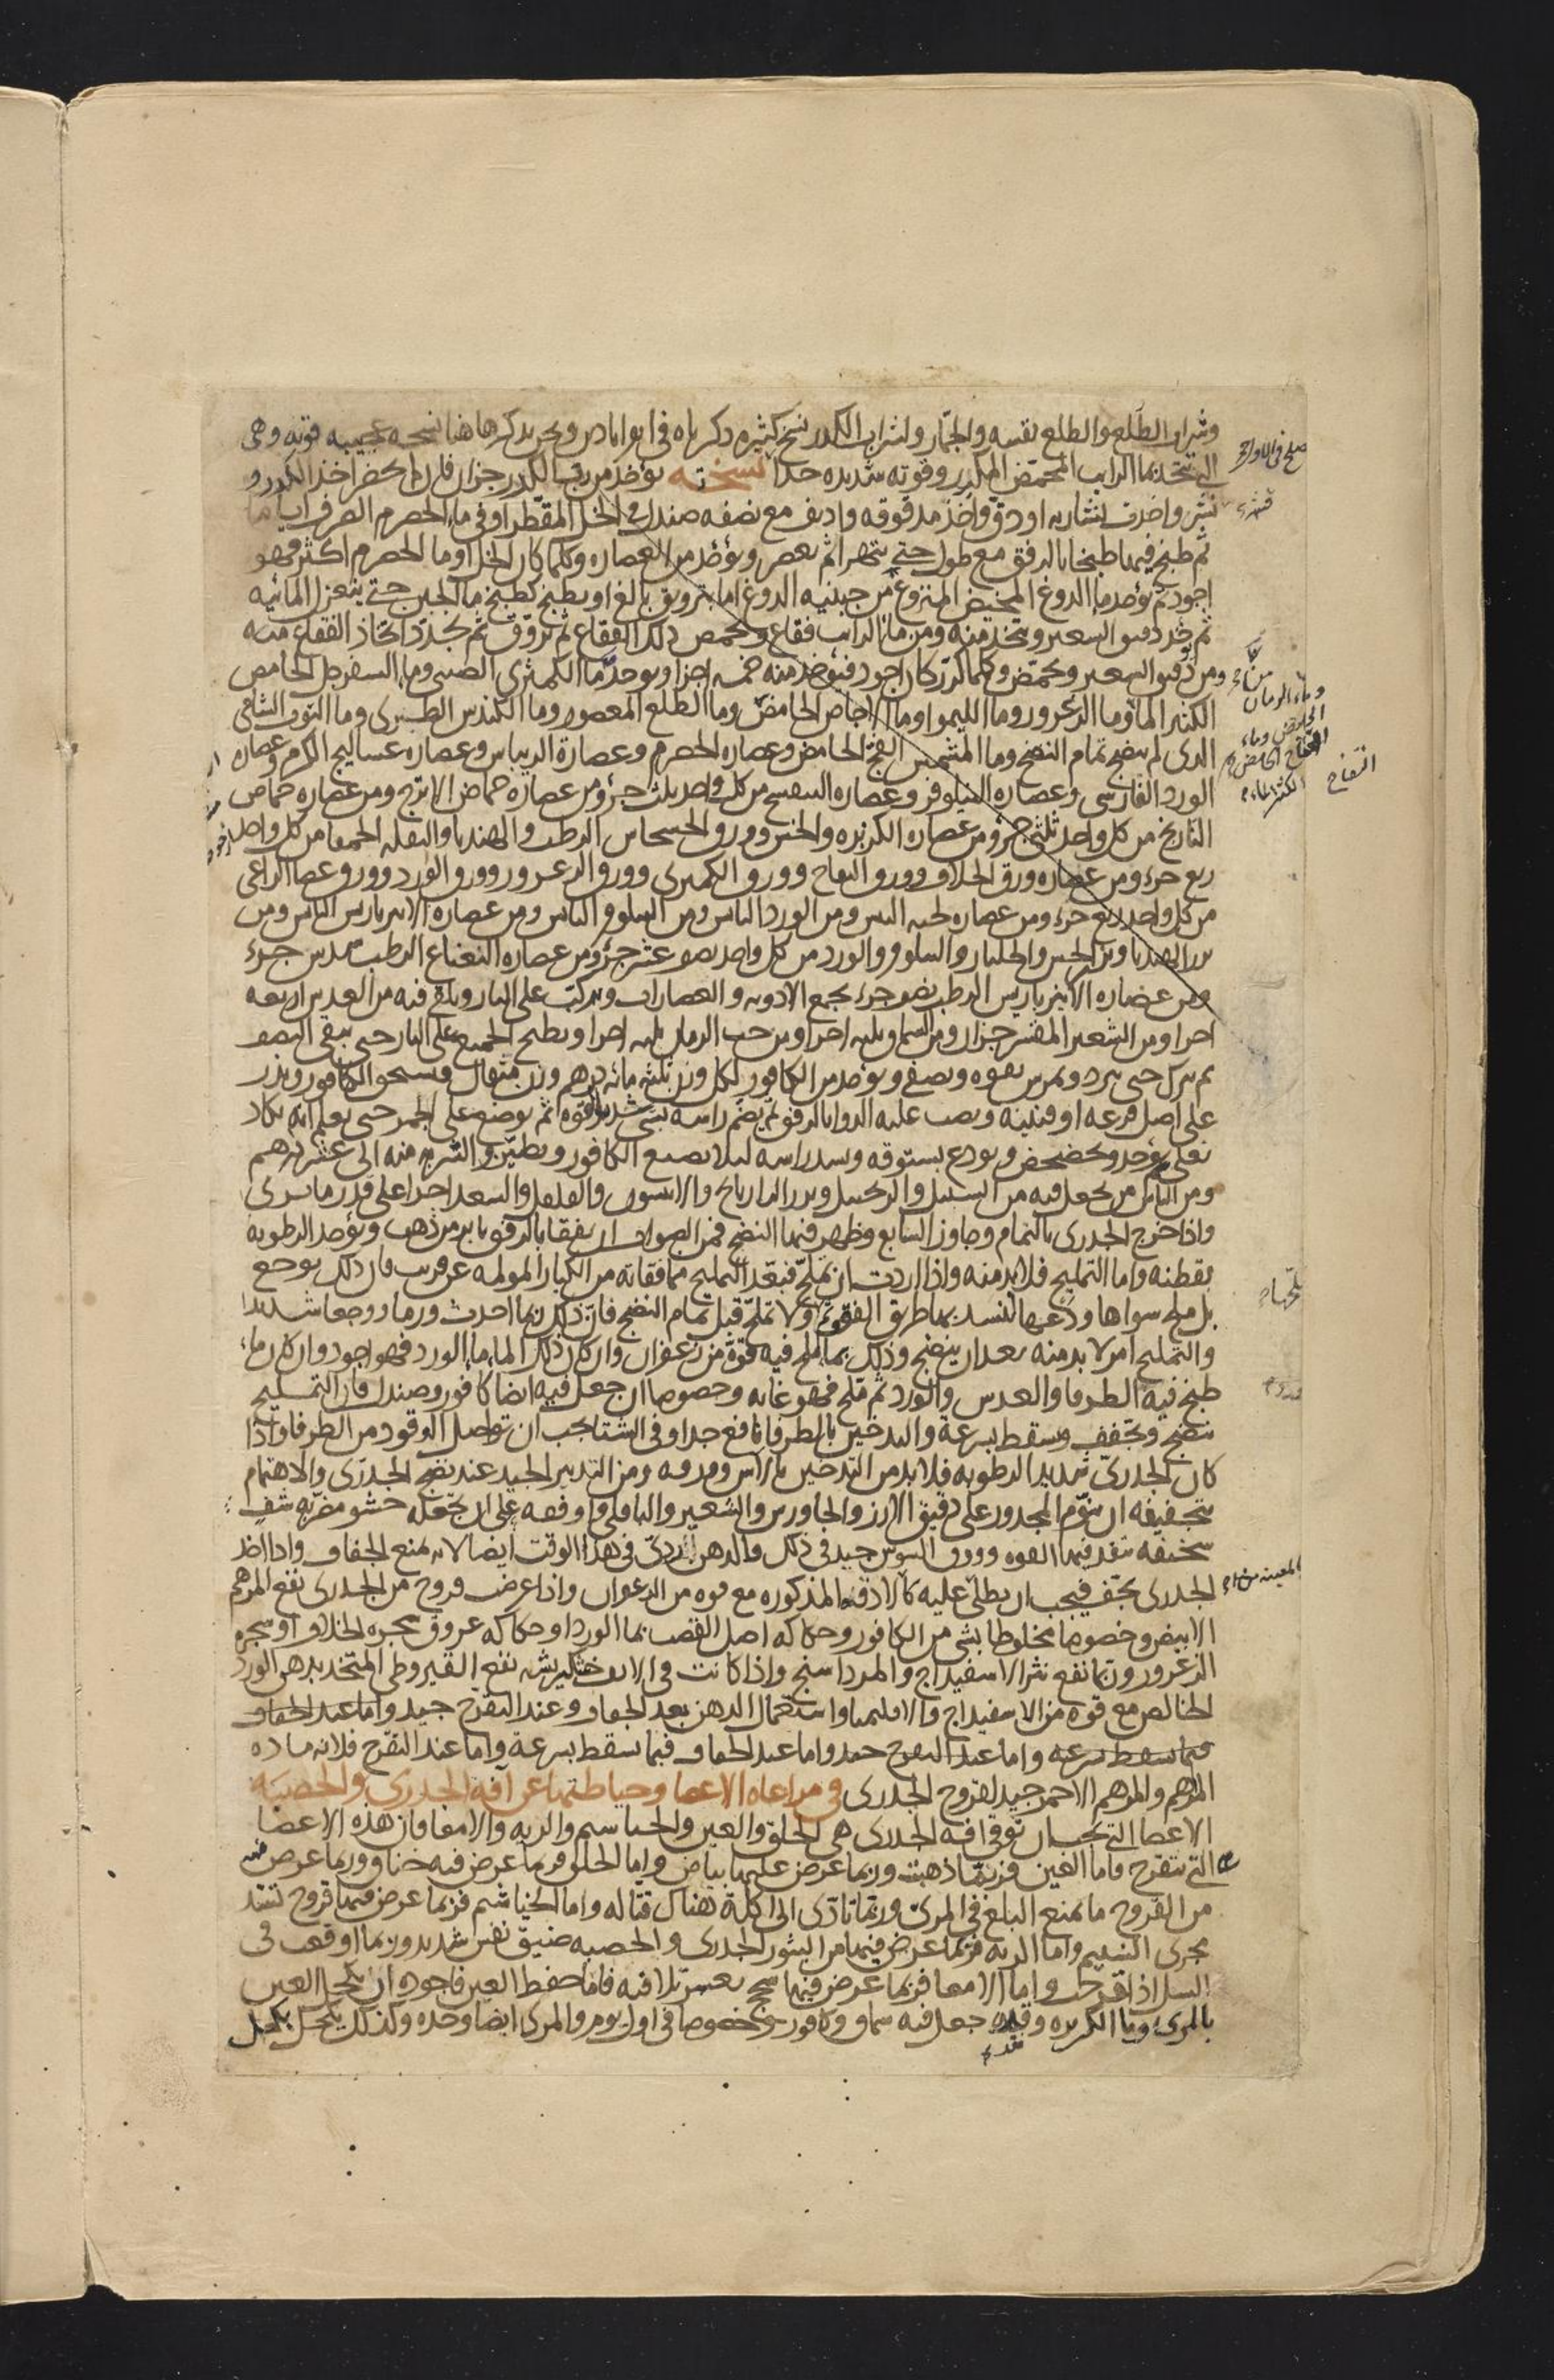 وشراب الطلع والطلع نفسه والجمّار ولشراب الكدر نسخ كثيره ذكرناه فى ابوابادين ونحن نذكر هاهنا نسخه عجيبه قويه وهى
التى تتخذ بماء الرايب المحمّض الكدر وقوته شديده جدا نسخته يؤخذ من رب الكدر جزان فان لم يحضر اخذ الكدر و
نشر واخذت نشارته او دق واخذ مدقوقه واديف مع نصفه صندل فى الخل المقطر او فى ماء الحصرم الصرف اياما
ثم طبخ فيهما طبخا بالرفق مع طول حتى يتهرا ثم يعصر ويؤخذ من العصاره وكلما كان الخل او ما الحصرم اكثر فهو
اجود ثم يؤخذ ما الدوغ المخيض المنزوع من جبنيه الدوغ اما بترويق بالغ او بطبخ كطبخ ما الجبن حتى يتعزل المائيه
ثم يؤخذ دقيق الشعير ويتخذ منه ومن ماء الرايب فقاع ويحمض ذلك الفقاع ثم يروّق ثم يجدد اتخاذ الفقاع منه
ومن دقيق الشعير ويحمّض وكلما كرر كان اجود فيؤخذ منه خمسه اجزا ويؤخذ ما الكمثرى الصينى وما السفرجل الحامض
الكثير الماء وما الزعرور وما الليموا وما الاجاص الحامض وما الطلع المعصور وما الكندس الطبرى وما التوت الشامى
الذى لم ينضج تمام النضج وما المشمش الفج الحامض وعصاره الحصرم وعصارة الريباس وعصاره عساليج الكرم وعصاره
الورد الفارسى وعصاره النيلوفر وعصاره البنفسج من كل واحد ثلث جزؤ ومن عصارة حماض الاترج ومن عصاره حماض
النارنج من كل واحد ثلثى جزؤ ومن عصاره الكزبره والخس وورق الخشخاش الرطب والهندبا والبقله الحمقا من كل واحد
ربع جزء ومن عصاره ورق الخلاف وورق التفاح وورق الكمثرى وورق الزعرور وورق الورد وورق عصا الراعى
من كل واحد ربع جزء ومن عصاره لحيه التيس ومن الورد اليابس ومن النيلوفر اليابس ومن عصاره الانبرباريس اليابس ومن
بزر الهندبا وبزر الخس والجلنار والنيلوفر والورد من كل واحد نصف عشر جزؤ ومن عصاره النعناع الرطب سدس جزء
ومن عصاره الانبرباريس الرطب نصف جزء يجمع الادويه والعصارات وتركب على النار ويلقى فيه من العدس اربعه
اجزا ومن الشعير المقشر جزان ومن السماق ثلثه اجزا ومن حب الرمان ثلثه اجزا ويطبخ الجميع على النار حتى يبقى النصف
ثم يترك حتى يبرد ويمرس بقوه ويصفى ويؤخذ من الكافور لكل وزن ثلثه مائه درهم وزن مثقال فيسحق الكافور ويذر
على اصل قرعه او قنينه ويصب عليه الدوا بالرفق ثم يضم راسه بشى شديد القوه ثم يوضع على الجمر حتى يعلم انه يكاد
يغلى ثم يؤخذ ويخضخض ويودع بستوقه ويسد راسه لئلا يصعد الكافور ويطيّن والشربه منه الى عشره درهم
ومن الناس من يجعل فيه من السنبل والزنجبيل وبزر الرازيانج والانيسون والفلفل والسعد اجزا على قدر ما يرى
واذا خرج الجدرى بالتمام وجاوز السابع وظهر فيها النضج فمن الصواب ان يفقا بالرفق بابر من ذهب ويؤخذ الرطوبه
بقطنه واما التمليح فلا بد منه واذا اردت ان تملّح فبعّد التمليح مما فقاته من الكبار المولمه عن قريب فان ذلك يوجع
بل ملح سواها ودعها لينسد بها طريق الفقو ولا تملّح قبل تمام النضج فان ذلك ربما احدث ورما ووجعا شديدا
والتمليح امر لا بد منه بعد ان ينضج وذلك بما ملح فيه قوة من زعفران وان كان ذلك الما ما الورد فهو اجود وان كان ما
طبخ فيه الطرفا والعدس والورد ثم ملح فهو غايه وخصوصا ان جعل فيه ايضا كافور وصندل فان التمليح
ينضج ويجفف ويسقط بسرعة والتدخين بالطرفا نافع جدا وفى الشتا يجب ان تواصل الوقود من الطرفا واذا
كان الجدرى شديد الرطوبه فلا بد من التدخين بالاس وورقه ومن التدبير الجيد عند نضج الجدرى والاهتمام
بتجفيفه ان ينوّم المجدور على دقيق الارز والجاورس والشعير والباقلى واوفقه على ان يجعله حشو مضربه شف
سخيفه ينفذ فيها القوه وورق السوس جيد فى ذلك والدهن ردى فى هذا الوقت ايضا لانه يمنع الجفاف واذا اخذ
الجدرى يجف فيجب ان يطلى عليه كالادقه المذكوره مع قوه من الزعفران واذا عرض قروح من الجدرى نفع المرهم
الابيض وخصوصا مخلوطا بشى من الكافور وحكاكه اصل القصب بما الورد او حكاكه عروق شجره الخلاف او شجره
الزعرور وربما نفع نثر الاسفيداج والمرداسنج واذا كانت فى الانف خشكريشه نفع القيروطى المتخذ بدهن الورد
الخالص مع قوة من الاسفيداج والاقليميا واستعمال الدهن بعد الجفاف وعند التقرح جيد واما عند الجفاف
فيما يسقط بسرعه واما عند التقرح جيد واما عند الجفاف فيما يسقط بسرعة واما عند التقرح فلانه ماده
المرهم والمرهم الاحمر جيد لقروح الجدرى فى مراعاه الاعضا وحياطتها عن آفه الجدرى والحصبه
الاعضا التى يجب ان توقى افه الجدرى هى الحلق والعين والخياشيم والريه والامعا فان هذه الاعضا
التى تتقرح فاما العين فربما ذهبت وربما عرض عليها بياض واما الحلق فربما عرض فيه خناق وربما عرض
من القروح ما يمنع البلع فى المرى وربما تادى الى اكلة هناك قتاله واما الخياشيم فربما عرض فيها قروح تسد
مجرى النسيم واما الريه فربما عرض فيها من البثور الجدرى والحصبه ضيق نفس شديد وربما اوقعت فى
السل اذا تقرحت واما الامعا فربما عرض فيها سحج يعسر تلافيه فاما حفظ العين فاجوده ان يكحل العين
بالمرى وما الكزبره وقد جعل فيه سماق وكافور وخصوصا فى اول يوم والمرى ايضا وحده وكذلك يكحل بكحل
وماء الرمان
الحامض وماء
التفاح الحامض
الكثير الماء
التفاح